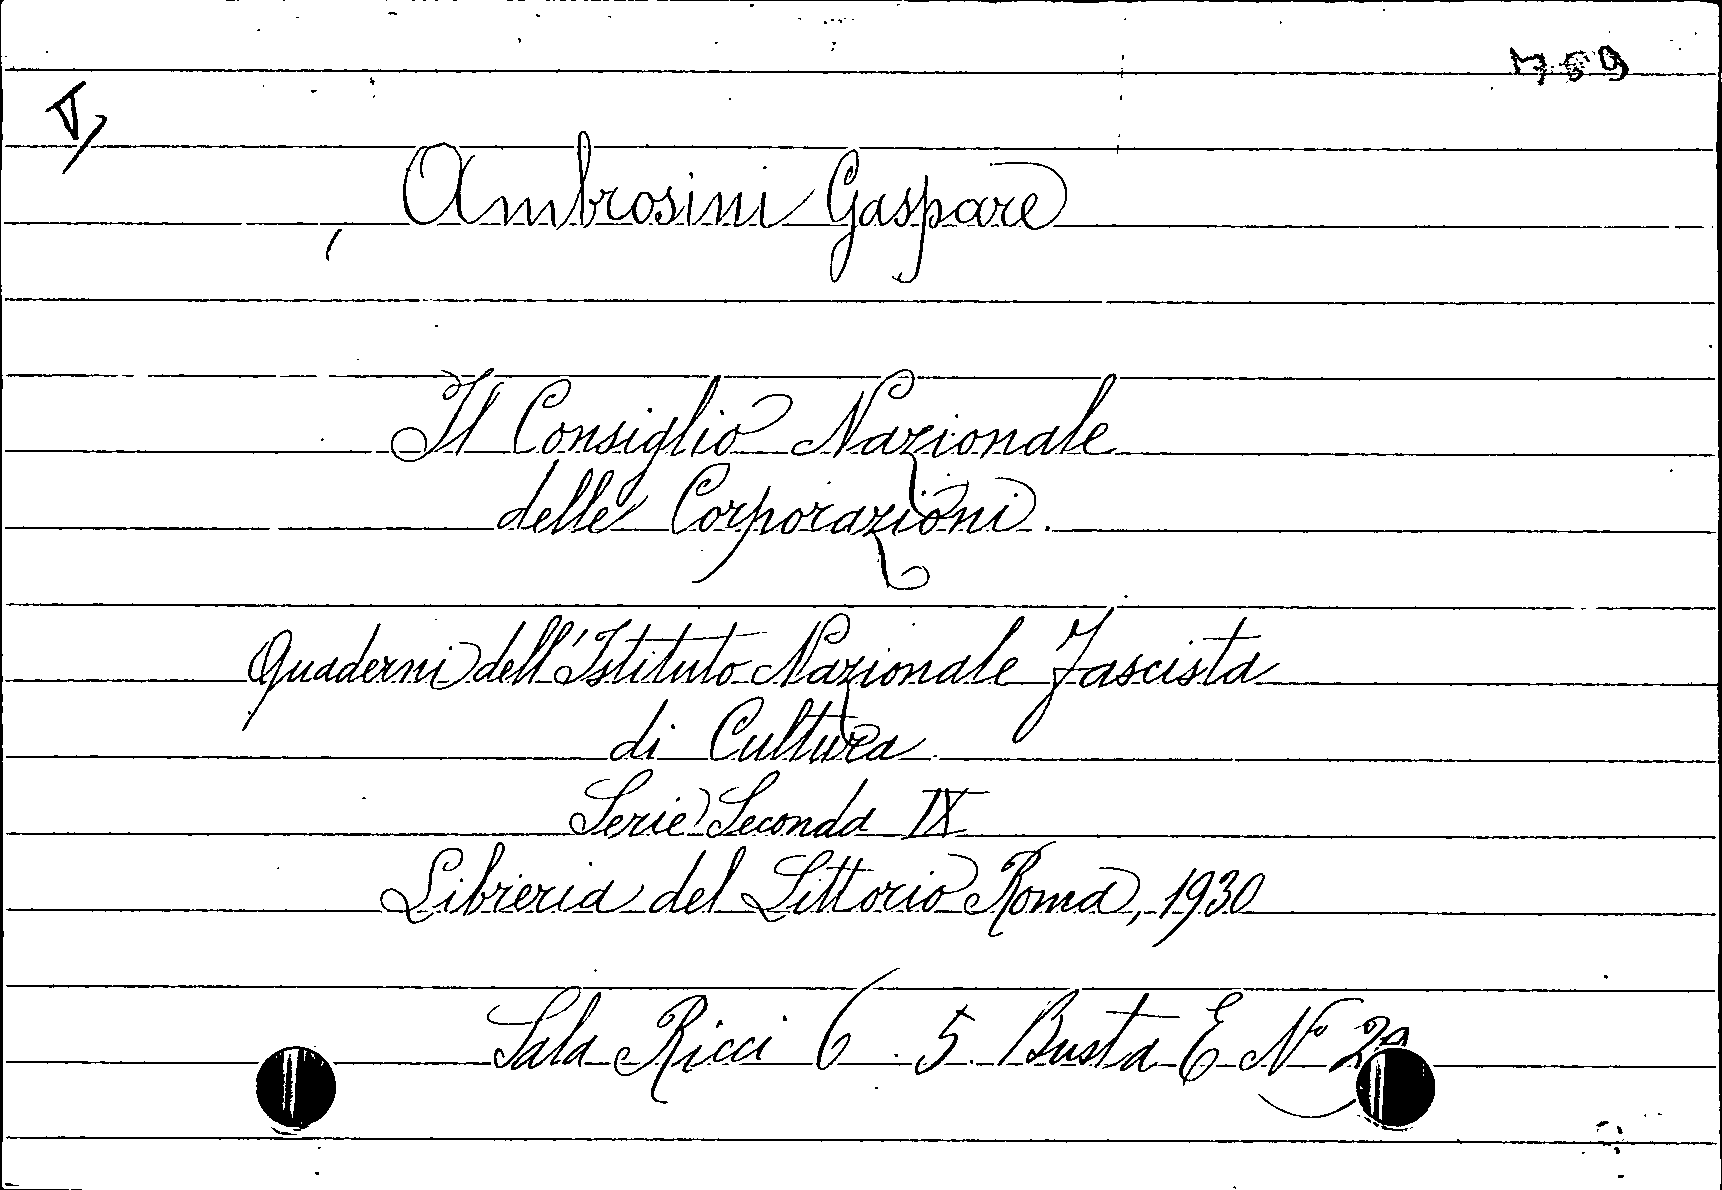 759
V,
Ambrosini Gaspare
Il Consiglio Nazionale
delle Corporazioni.
Quaderni dell'Istituto Nazionale Fascista
di Cultura.
Serie Seconda IX
Libreria del Littorio Roma, 1930
Sala Ricci 6. 5. Busta E Nº